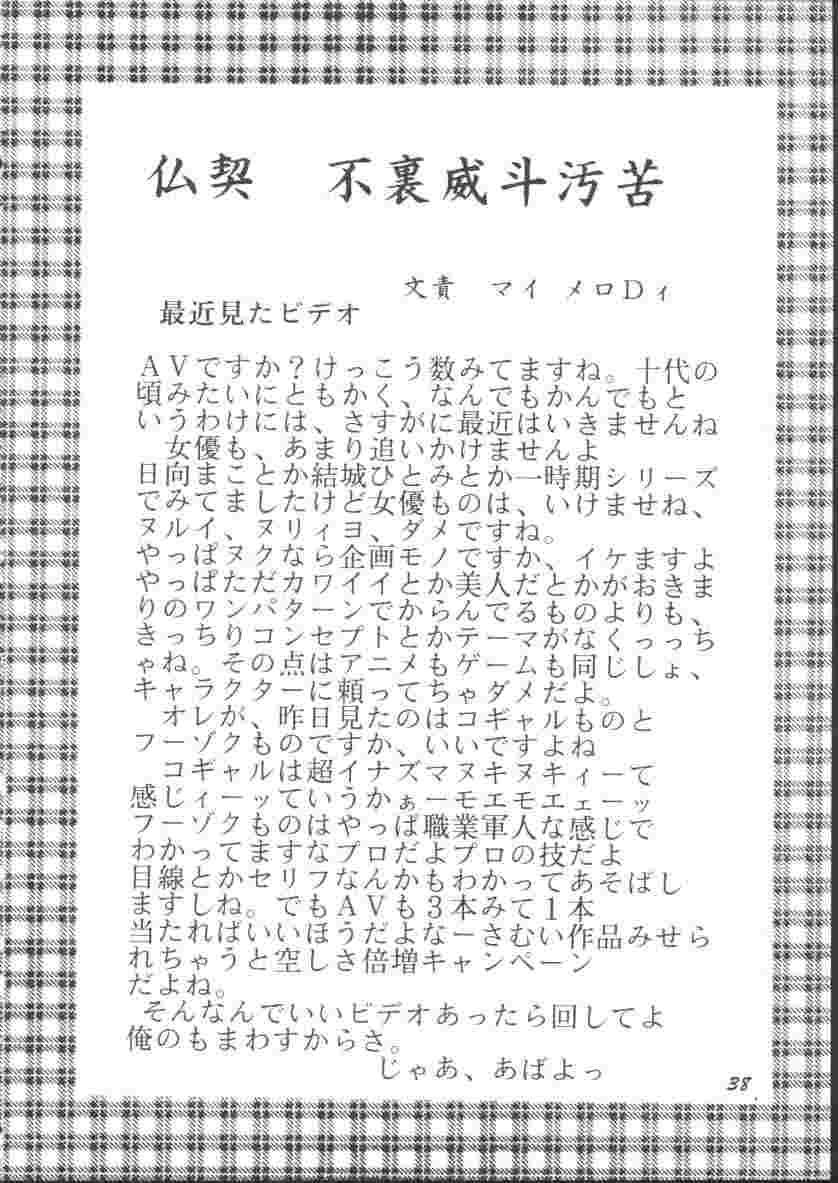 仏契　不裏威斗汚苦
文責　マイ メロDィ
最近見たビデオ
AVですか？けっこう数みてますね。十代の
頃みたいにともかく、なんでもかんでもと
いうわけには、さすがに最近はいきませんね
　女優も、あまり追いかけませんよ
日向まことか結城ひとみとか一時期シリーズ
でみてましたけど女優ものは、いけませね、
ヌルイ、ヌリィヨ、ダメですね。
やっぱヌクなら企画モノですか、イケますよ
やっぱただカワイイとか美人だとかがおきま
りのワンパターンでからんでるものよりも、
きっちりコンセプトとかテーマがなくっっち
ゃね。その点はアニメもゲームも同じしょ、
キャラクターに頼ってちゃダメだよ。
　オレが、昨日見たのはコギャルものと
フーゾクものですか、いいですよね
　コギャルは超イナズマヌキヌキィーて
感じィーッていうかぁーモエモエェーッ
フーゾクものはやっぱ職業軍人な感じで
わかってますなプロだよプロの技だよ
目線とかセリフなんかもわかってあそばし
ますしね。でもAVも３本みて１本
当たればいいほうだよなーさむい作品みせら
れちゃうと空しさ倍増キャンペーン
だよね。
そんなんでいいビデオあったら回してよ
俺のもまわすからさ。
じゃあ、あばよっ
38